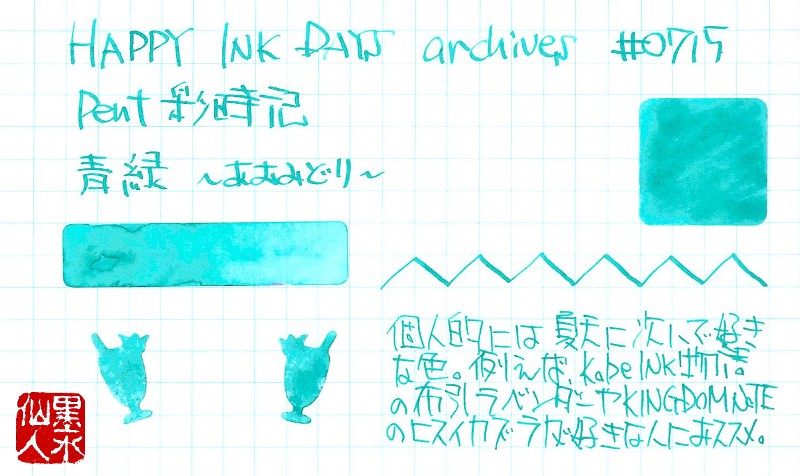 HAPPY INK DAYS archives #0715
Pent 彩時記
青緑 ～あおみどり～
個人的には夏天に次いで好き
な色。例えば、Kobe INK物語
の布引ラベンダーやKINGDOM NOTE
のヒスイカズラが好きな人におススメ。
墨水
仙人